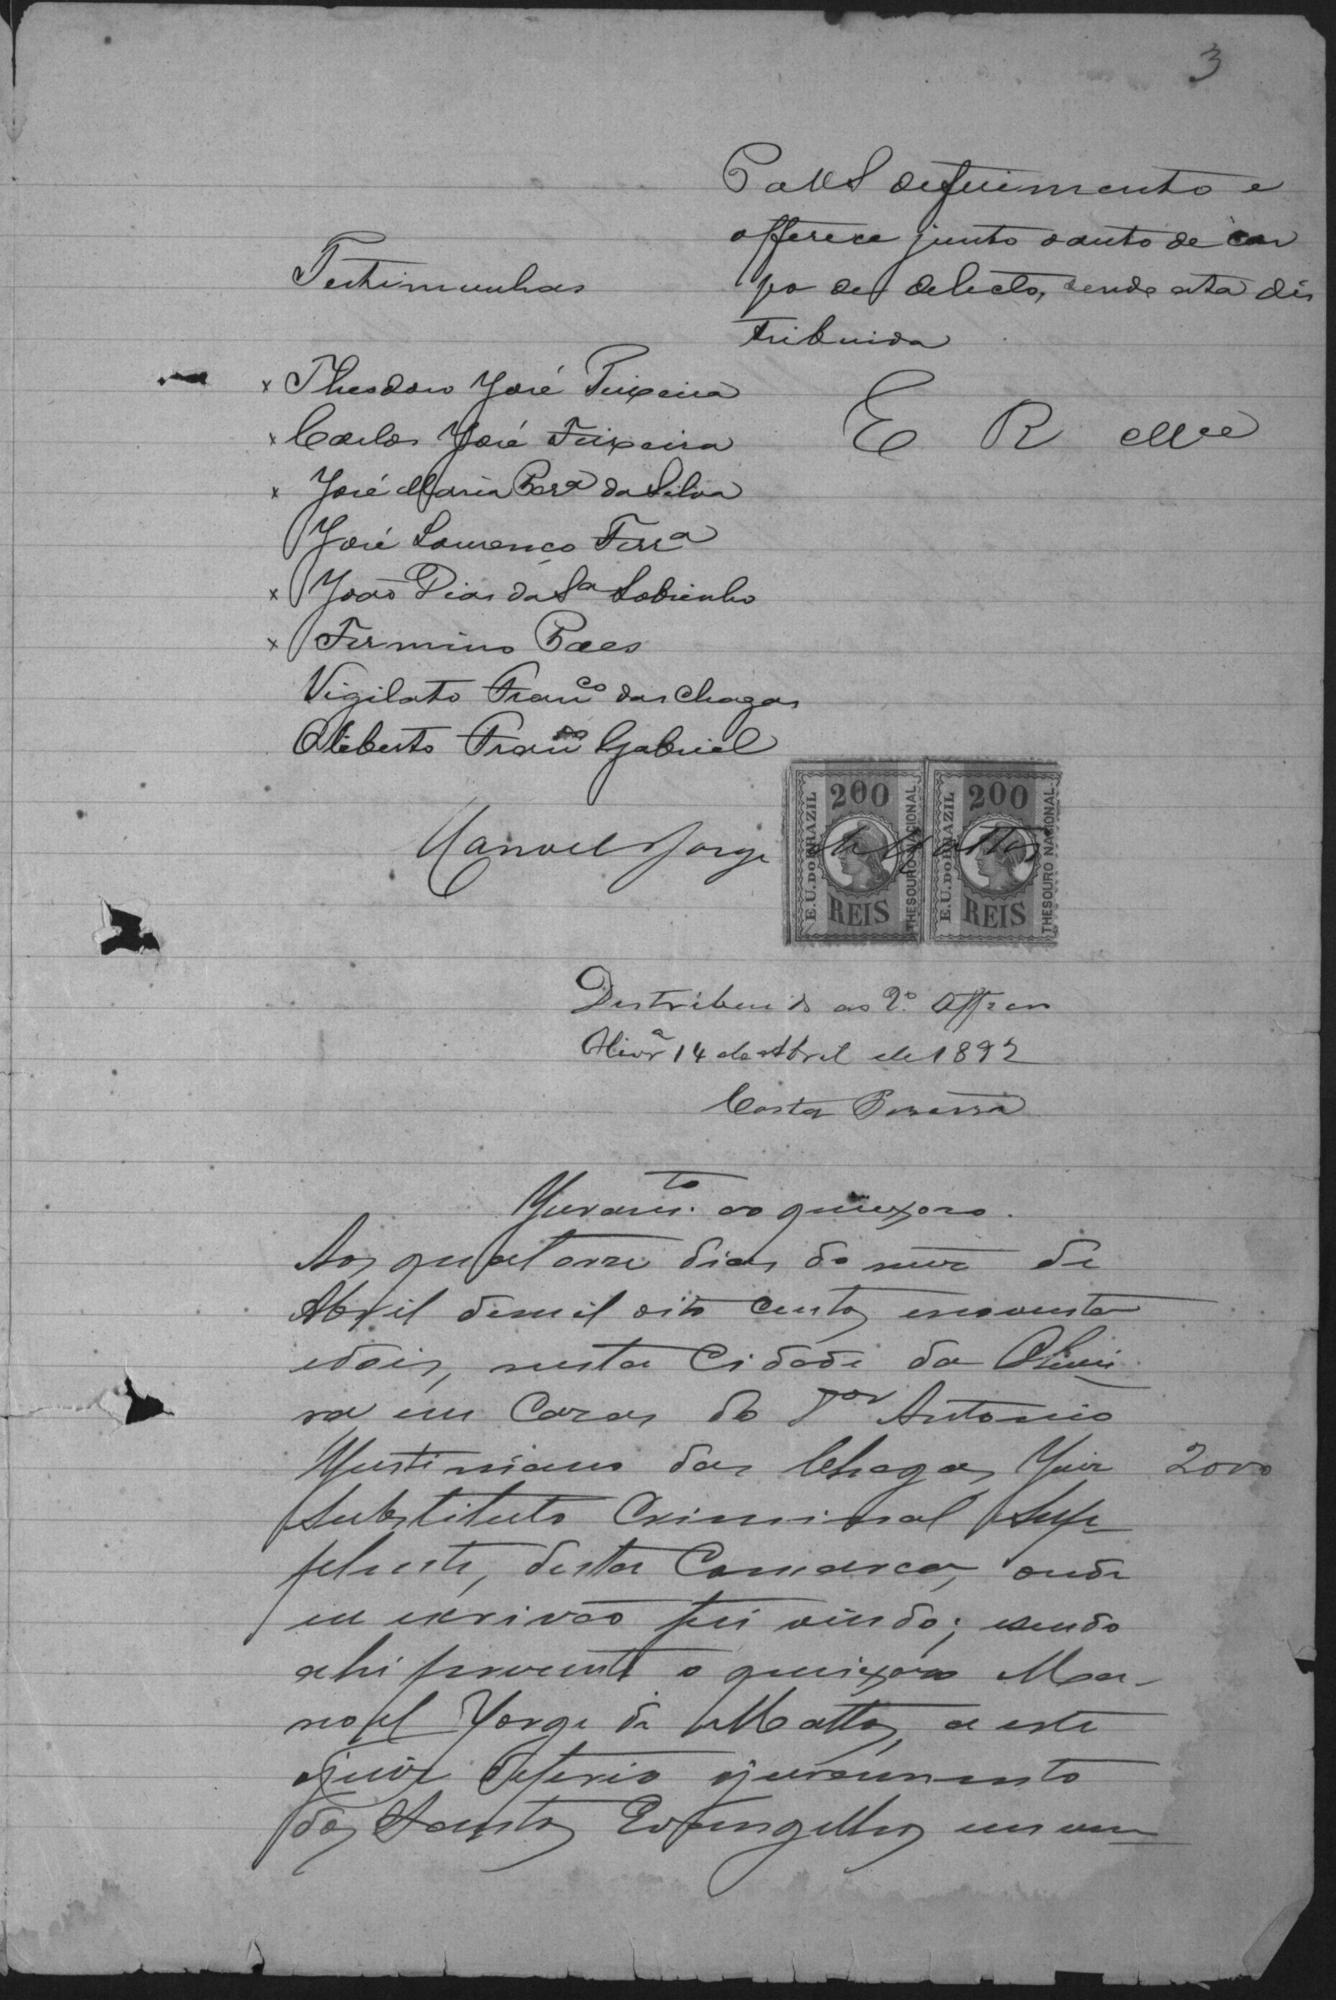 3
P a V S deferimento e
offerece junto o auto de cor
po de delicto, sendo esta dis
tribuida
E R Mce
Testimunhas
x Theodoro José Teixeira
x Carlos José Teixeira
x José Maria Per.a da Silva
José Lourenço Ferr.a
x João Dias da S.a Sobrinho
x Firmino Paes
Vigilato Fran.co das Chagas
Alberto Fran.co Gabriel
Manoel Jorge de Mattos
E.U. DO BRAZIL 200 REIS THESOURO NACIONAL
E.U. DO BRAZIL 200 REIS THESOURO NACIONAL
Destribuido ao 2º Off
Olivr.a 14 de Abril de 1892
Costa Pereira
Juram.to ao queixoso.
Aos quatorze dias do mez de
Abril de mil oito centos e noventa
e dois, nesta Cidade da Olivei
ra em Cazas do D.or Antonio
Justiniano das Chagas, Juiz 2000
Substituto Criminal Sup
plente, desta Comarca, onde
eu escrivão fui vindo; e sendo
ahi prezente o queixoso Ma-
noel Jorge de Mattos, a este
o juiz deferio o juramento
dos Santos Evangelhos em um